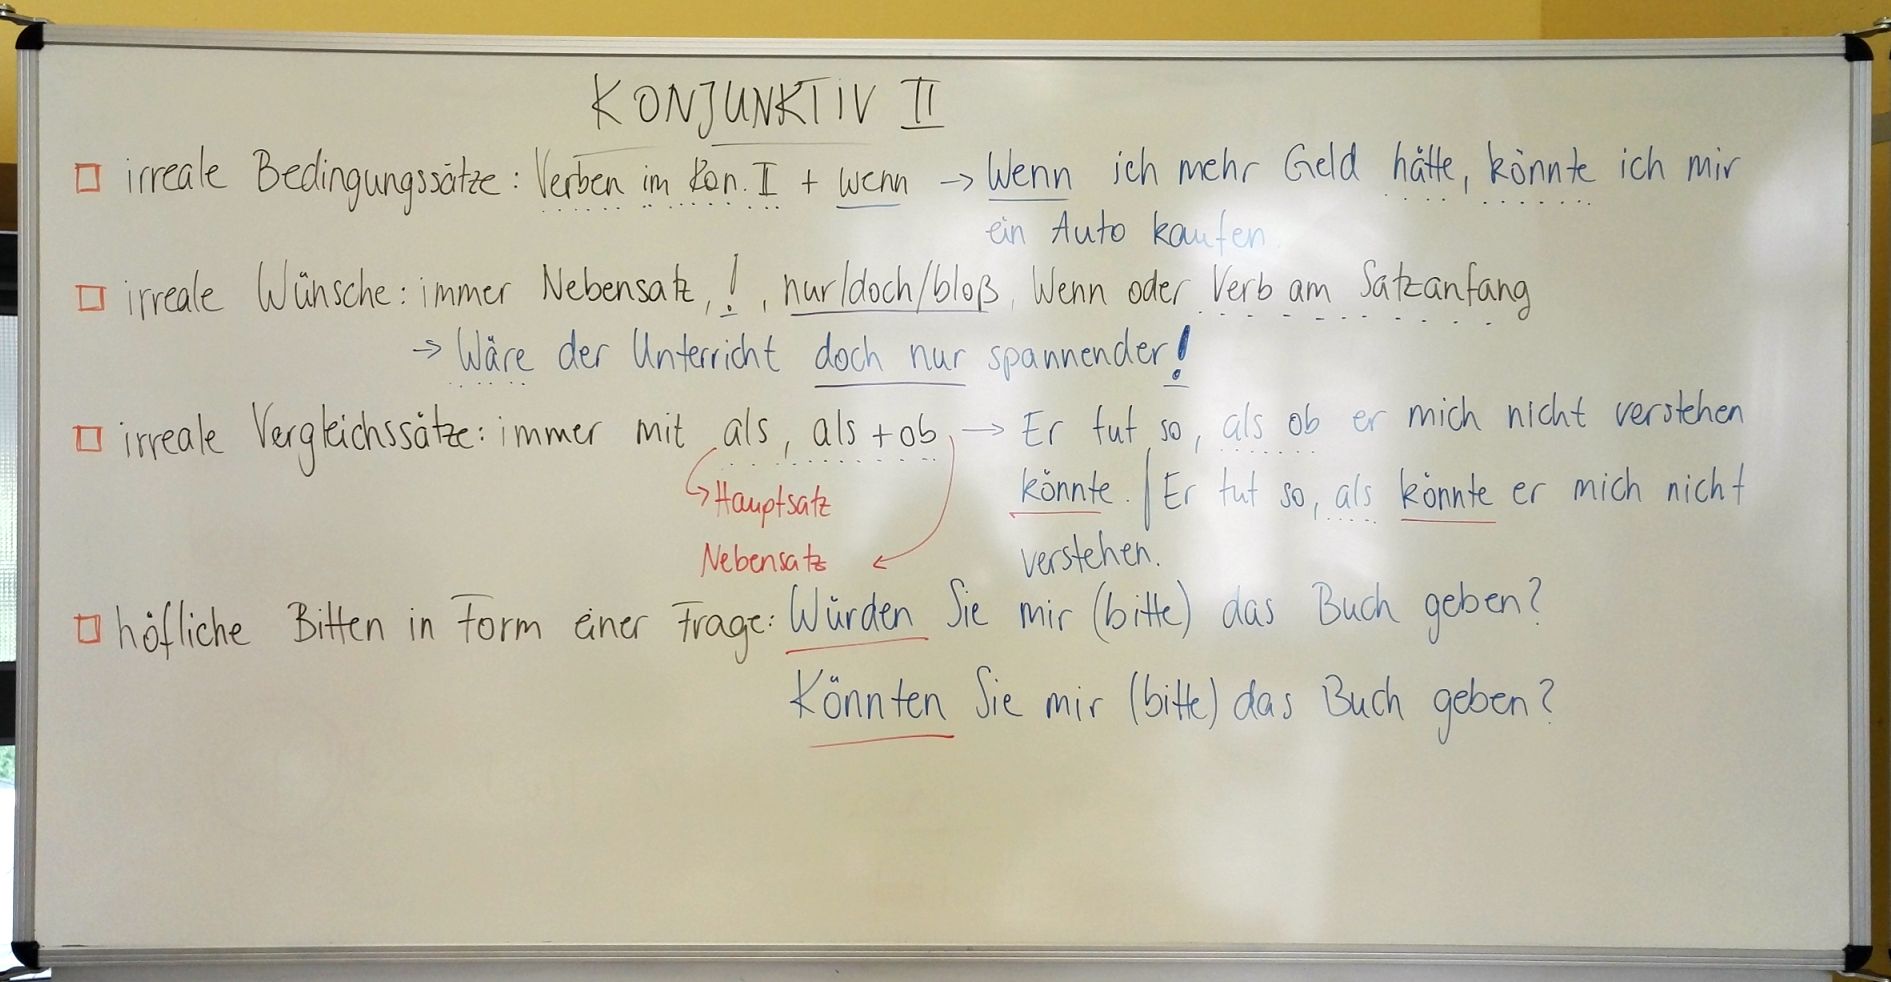 KONJUNKTIV II
irreale Bedingungssätze: Verben im Kon. II + wenn → Wenn ich mehr Geld hätte, könnte ich mir
ein Auto kaufen.
irreale Wünsche: immer Nebensatz, !, nur/doch/bloß, Wenn oder Verb am Satzanfang
→ Wäre der Unterricht doch nur spannender!
irreale Vergleichssätze: immer mit als, als + ob → Er tut so, als ob er mich nicht verstehen
Hauptsatz
könnte. / Er tut so, als könnte er mich nicht
Nebensatz
verstehen.
höfliche Bitten in Form einer Frage: Würden Sie mir (bitte) das Buch geben?
Könnten Sie mir (bitte) das Buch geben?